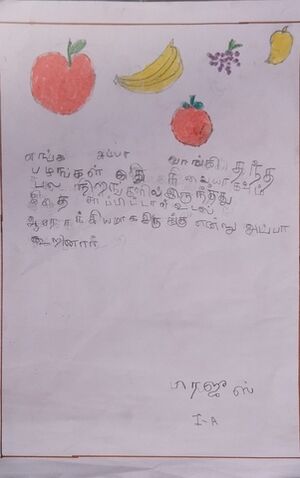 எங்க அப்பா வாங்கி தந்த
பழங்கள் இது
பல நிறங்களில் இருந்தது
இதை சாப்பிட்டால் உடல்
ஆரோக்கியமாக இருக்கு என்று அப்பா
கூறினார்
I-A